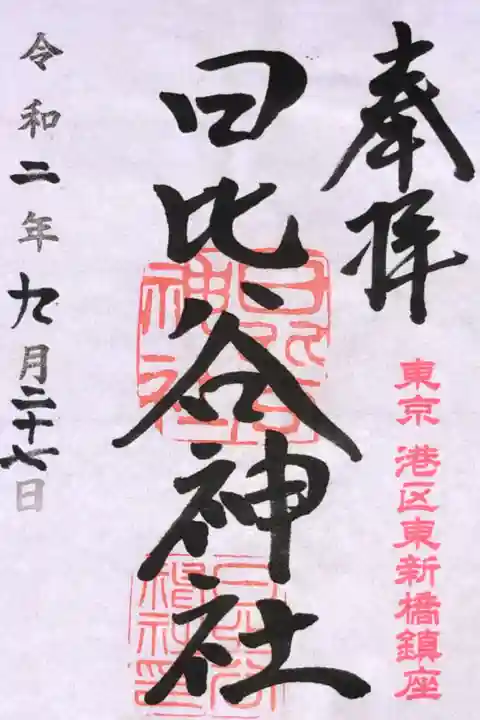 奉拝
東京 港区東新橋鎮座
日比谷神社
日比谷神社
令和二年九月二十七日